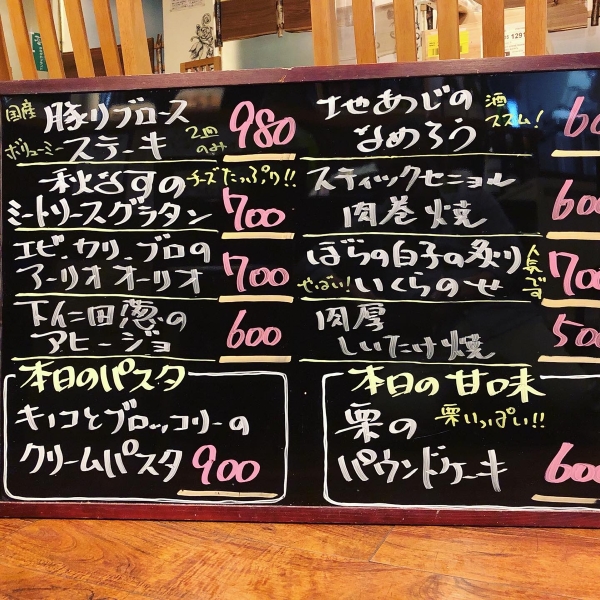 国産
豚リブロース
ボリューミー ステーキ
2皿のみ
980
秋なすの
チーズたっぷり!!
ミートソースグラタン
700
エビ、カリ、ブロの
アーリオオーリオ
700
下仁田葱の
アヒージョ
600
本日のパスタ
キノコとブロッコリーの
クリームパスタ
900
地あじの
なめろう
酒ススム!
60
スティックセニョル
肉巻焼
600
ぼらの白子の炙り
やばい! いくらのせ
人気です
700
肉厚
しいたけ焼
500
本日の甘味
栗の
栗いっぱい!!
パウンドケーキ
600